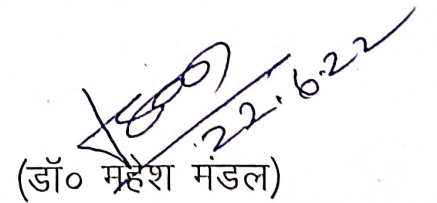 22.6.22
(डॉ० महेश मंडल)